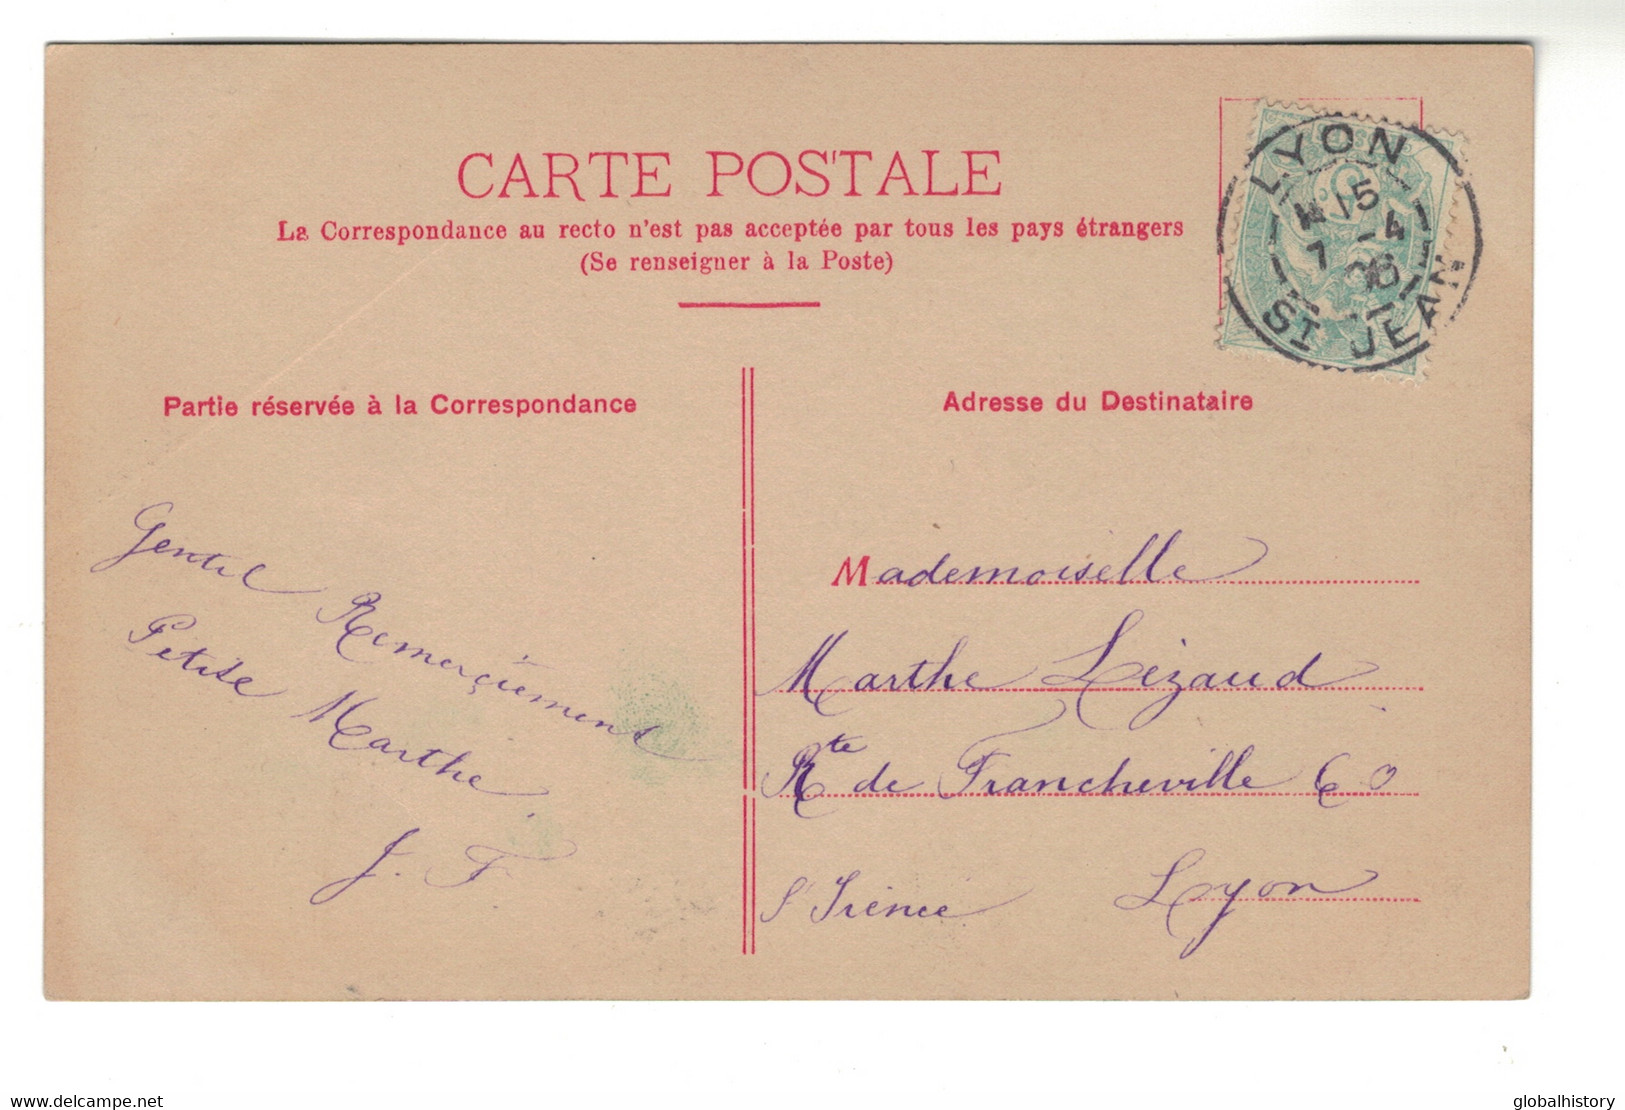 CARTE POSTALE
La Correspondance au recto n'est pas acceptée par tous les pays étrangers
(Se renseigner à la Poste)
LYON
15
7 -4
06
ST JEAN
Partie réservée à la Correspondance
Adresse du Destinataire
Gentil Remerçiement
Petite Marthe.
J. F
Mademoiselle
Marthe Lézaud
Rte de Francheville 60
St Irénée Lyon
www.delcampe.net
globalhistory